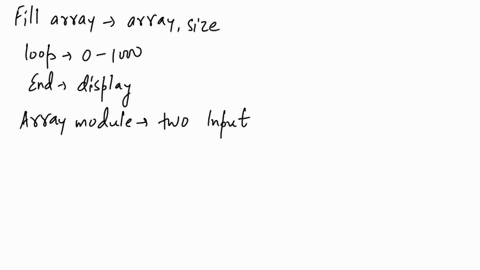 Fill array → array, size
loop → 0-1000
End → display
Array module → two Input